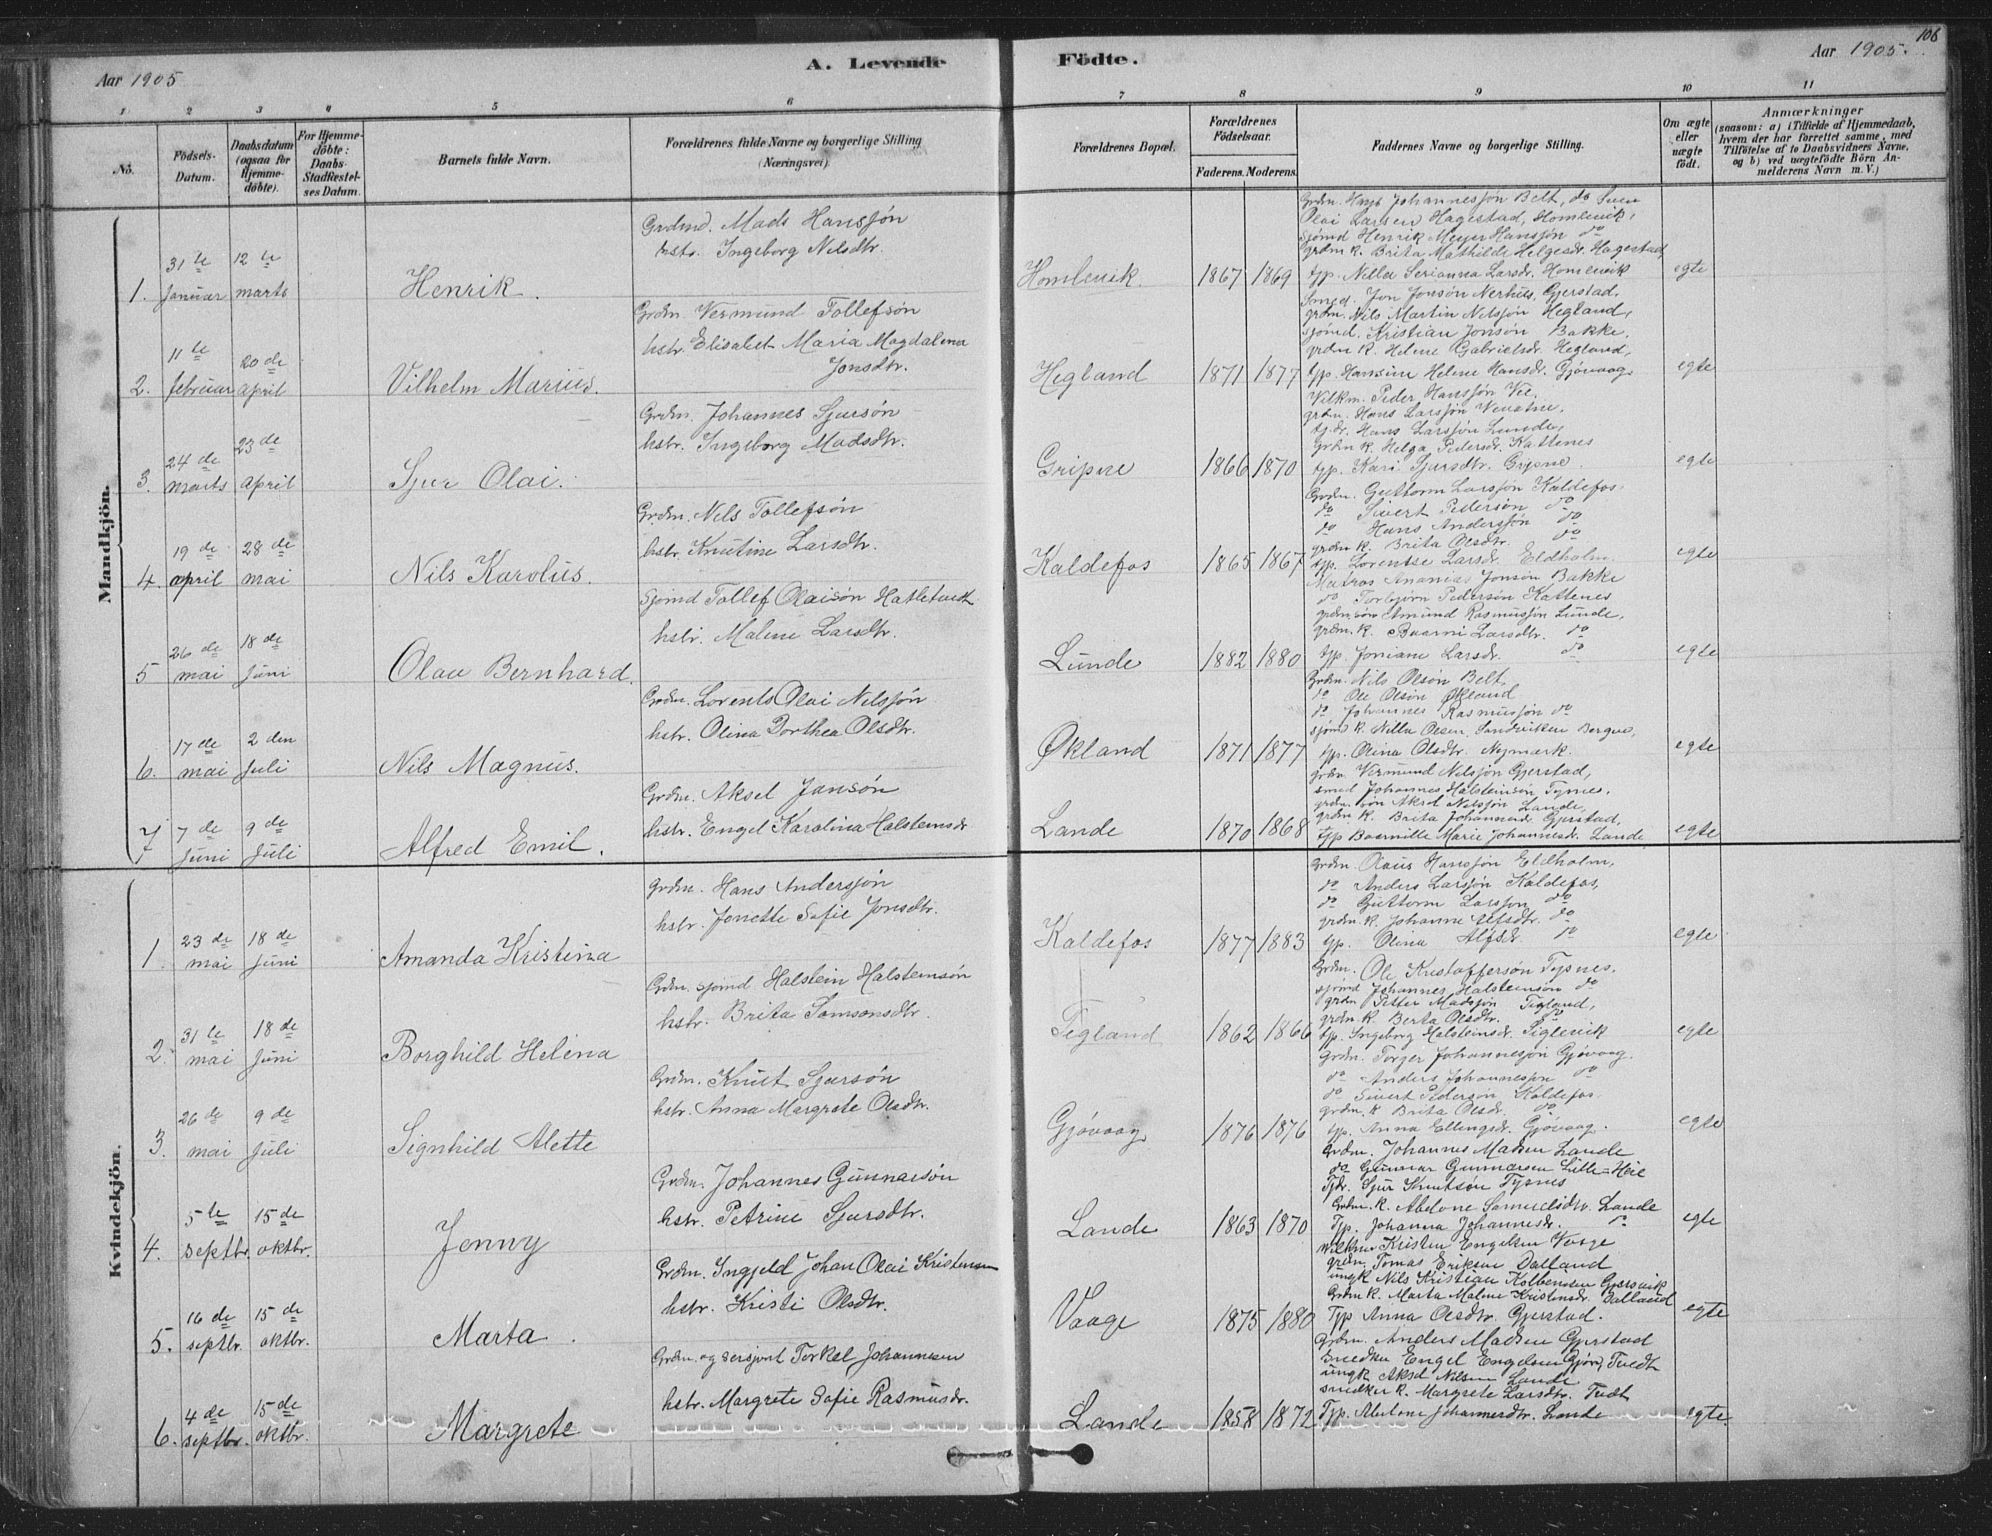 106
Aar 1905
A. Levende
Födte.
Aar 1905.
1 2 3 4 5 6 7 8 9 10 11
No.
Födsels-
Datum.
Daabsdatum
(ogsaa for
Hjemme-
döbte).
For Hjemme-
döbte:
Daabs-
Stadfæstel-
ses Datum.
Barnets fulde Navn.
Forældrenes fulde Navne og borgerlige Stilling
(Næringsvei).
Forældrenes Bopæl.
Forældrenes
Födselsaar.
Faderens. Moderens.
Faddernes Navne og borgerlige Stilling.
Om ægte
eller
uægte
födt.
Anmærkninger
(saasom: a) i Tilfælde af Hjemmedaab,
hvem der har forrettet samme, med
Tilföielse af to Daabsvidners Navne,
og b) ved uægtefödte Börn An-
melderens Navn m. V.)
Mandkjön.
1. 31te Januar 12te marts Henrik.
Grdmd. Mads Hansjön
hstr. Ingeborg Nilsdtr.
Homlevik 1867 1869
Grdm. Hans Johannesjön Belt, do Sven
Olai Larsen Hagestad, Homlevik,
Sjömd Henrik Meyer Hansjön do
grdm k. Brita Mathilde Helgesdr. Hagestad,
tjp. Nilla Serianna Larsdr. Homlevik
egte
2. 11te februar 20de april Vilhelm Marius.
Grdm. Vermund Tollefsön
hstr. Elisabet Maria Magdalena
Jonsdtr.
Hegland 1871 1877
Smed. Jon Jonsön Nerhus, Gjerstad.
grdm. Nils Martin Nilsjön Hegland,
sjömd. Kristian Jonsön Bakke.
grdm k. Helene Gabrielsdr. Hegland,
tjp. Hansine Helene Hansdr. Gjövaag
egte
3. 24de marts 23de april Sjur Olai.
Grdm. Johannes Sjursön
hstr. Ingeborg Madsdtr.
Gripne 1866 1870
Vilkm. Peder Hansjön Vee.
grdm. Hans Larsjön Venatne.
tj.dr. Hans Larsjön Lunde,
Grdm k. Helga Pedersdr. Kattenes
tjp. Kari Sjursdtr. Gripne.
egte
4. 19de april 28de mai Nils Karolus.
Grdm. Nils Tollefsön
hstr. Knutine Larsdtr.
Kaldefos 1865 1867
Grdm. Guttorm Larsjön Kaldefos.
do Sivert Pedersön do
do Hans Andersjön do
grdm k. Brita Olsdtr. do
tjp. Lorentse Larsdr. Eldholm.
egte
5 26de mai 18de Juni Olav Bernhard.
Sjömd Tollef Olaisön Hatletvedt
hstr. Malene Larsdtr.
Lunde 1882 1880
Matros Ananias Jonsön Bakke
do Torbjörn Pedersön Kattenes
grdm.sön Amund Rasmusjön Lunde,
grdm. k. Larsdtr. do
tjp. Joniane Larsdr. do
egte
6. 17de mai 2den Juli Nils Magnus.
Grdm. Lorents Olai Nilsjön
hstr. Olina Dorthea Olsdtr.
Økland 1871 1877
Grdm. Nils Olsön Belt
do Ole Olsön Økland
do Johannes Rasmusjön do
sjömd k. Nilla Olsen, Sandviken Bergen,
tjp. Olina Olsdtr. Nymark.
egte
7 7de Juni 9de Juli Alfred Emil.
Grdm. Aksel Jansön
hstr. Engel Karolina Halsteinsdr
Lande 1870 1868
Grdm. Vermund Nilsjön Gjerstad,
smed Johannes Halsteinsen Tysnes.
grdm. sön Aksel Nilsjön Lande,
grdm k. Brita Johannesdr. Gjerstad,
tjp Boemille Marie Johannesdr. Lande
egte
Kvindekjön.
1. 23de mai 18de Juni Amanda Kristina
Grdm. Hans Andersjön
hstr. Jonette Sofie Jonsdtr.
Kaldefos 1877 1883
Grdm. Olaus Hansjön Eldholm,
do Anders Larsjön Kaldefos,
do Guttorm Larsjön do
grdm. k. Johanne Alfsdtr. do
tjp. Olina Alfsdr do
egte
2. 31te mai 18de Juni Borghild Helena
Grdm. sjömd Halstein Halsteinsön
hstr. Brita Samsonsdtr.
Tegland 1862 1866
Grdm. Ole Kristoffersön Tysnes.
sjömd Johannes Halsteinsön do
grdm Petter Madsjön Tegland,
grdm k. Berta Olsdtr. do
tjp. Ingeborg Halsteinsdr. Teglevik
egte
3. 26de mai 9de Juli Signhild Alette
Grdm. Knut Sjursön
hstr. Anna Margrete Olsdtr.
Gjövaag 1876 1876
Grdm. Torger Johannesjön Gjövaag.
do Anders Johannesjön do
do Sivert Pedersön Kaldefos.
grdm. k Brita Olsdr. do
tjp. Anna Ellingsdr. Gjövaag.
egte
4. 5te septbr. 15de oktbr. Jenny
Grdm. Johannes Gunnarsön
hstr. Petrine Sjursdtr.
Lande 1863 1870
Grdm. Johannes Madsen Lande
do Gunnar Gunnarsen Lille-Heie
Tjdr. Sjur Knutsön Tysnes
Grdm. k. Abelone Samuelsdtr. Lande
Tjp. Johanna Johannesdr. do
egte
5. 16de septbr. 15de oktbr. Marta.
Grdm. Ingjeld Johan Olai Kristensen
hstr. Kristi Olsdtr.
Vaage 1875 1880
Vilkmr Kristen Engelsen Vaage
grdm. Tomas Eriksen Dalland
ungk Nils Kristian Kolbensen Gjersvik
Grdm k. Marta Malene Kristensdr. Dalland
Tjp Anna Olsdtr. Gjerstad.
egte
6. 4de septbr. 15de oktbr. Margrete
Grdm. og sersjant Torkel Johannesen
hstr. Margrete Sofie Rasmusdr.
Lande 1858 1872
Grdm. Anders Madsen Gjerstad
Snedker Engel Engelsen Gjön, Tvedt
ungk Aksel Nilsen Lande
snedker k. Margrete Larsdtr. Tvedt
Tjp. Abelone Johannesdtr. Lande
egte.